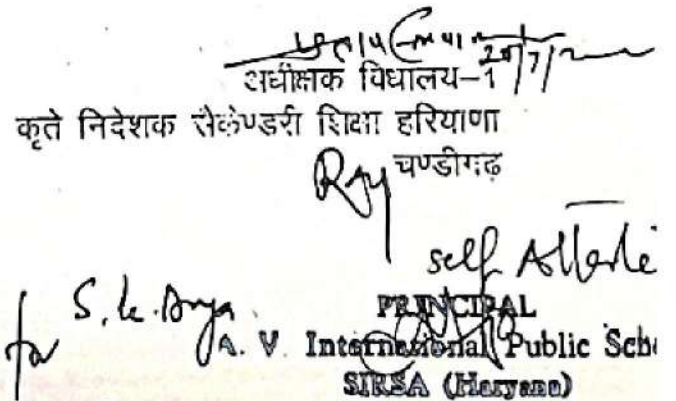 अधीक्षक विधालय-1
कृते निदेशक सैकेण्डरी शिक्षा हरियाणा
चण्डीगढ़
self Atteste
for S. k. Arya
PRINCIPAL
A. V. International Public Scho
SIRSA (Haryana)